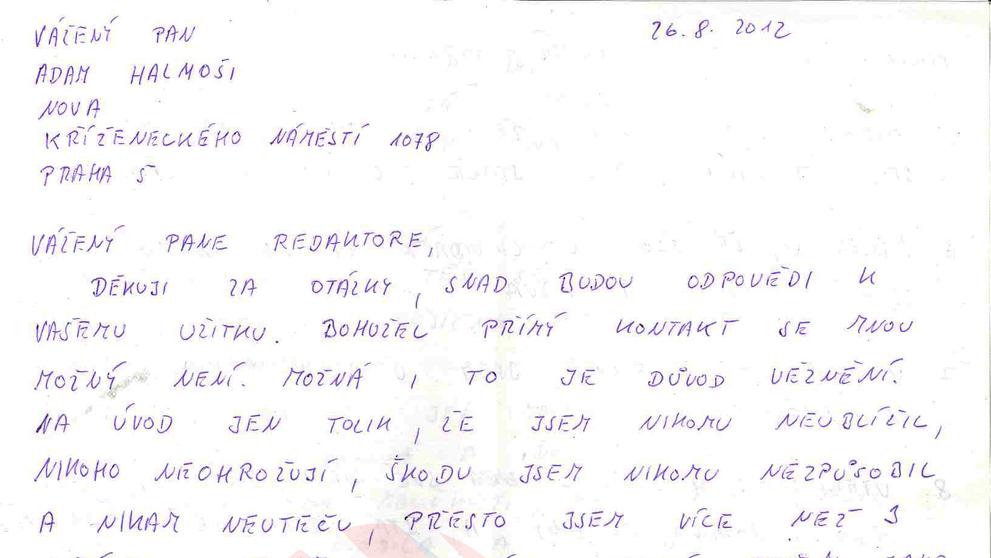 VÁŽENÝ PAN 26.8.2012
ADAM HALMOŠI
NOVA
KŘÍŽENECKÉHO NÁMĚSTÍ 1078
PRAHA 5
VÁŽENÝ PANE REDAKTORE,
DĚKUJI ZA OTÁZKY, SNAD BUDOU ODPOVĚDI K
VAŠEMU UŽITKU. BOHUŽEL PŘÍMÝ KONTAKT SE MNOU
MOŽNÝ NENÍ. MOŽNÁ I TO JE DŮVOD VĚZNĚNÍ.
NA ÚVOD JEN TOLIK, ŽE JSEM NIKOMU NEUBLÍŽIL,
NIKOHO NEOHROŽUJÍ, ŠKODU JSEM NIKOMU NEZPŮSOBIL
A NIKAM NEUTEČU, PŘESTO JSEM VÍCE NEŽ 3